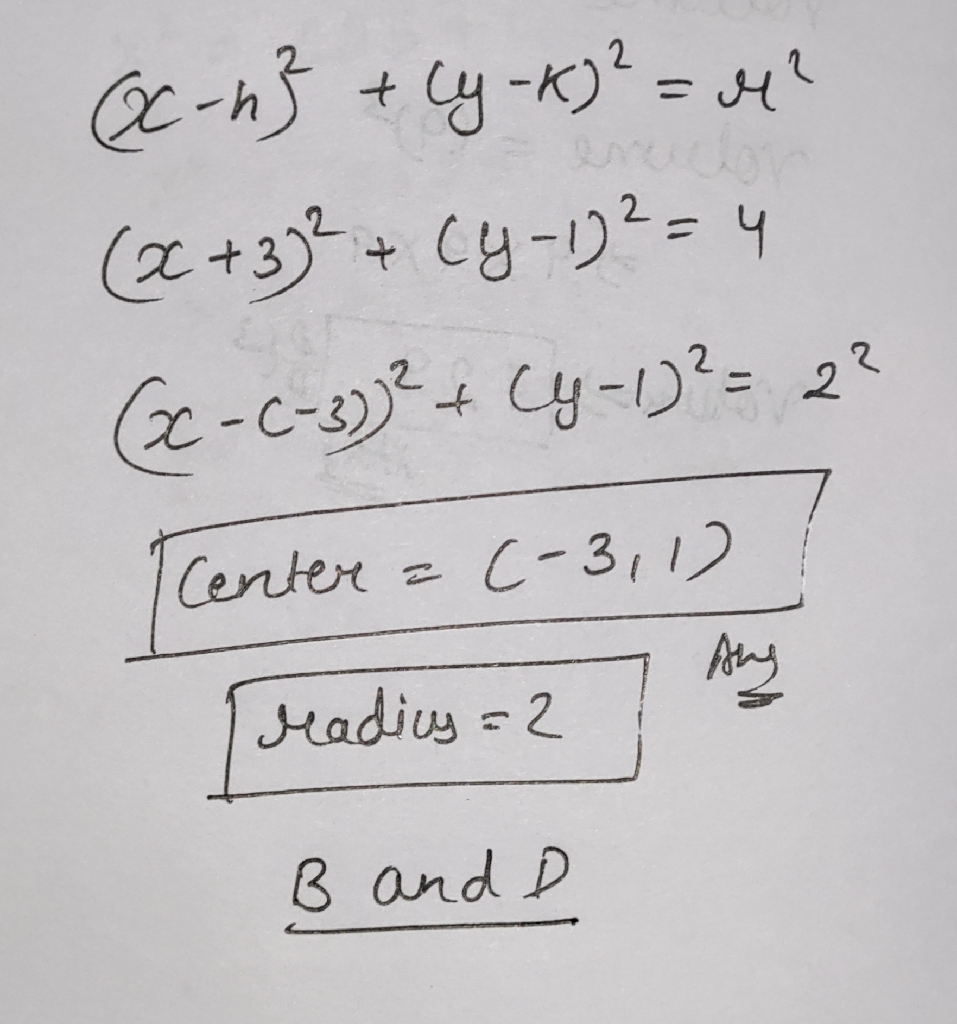 (x-h)² + (y-k)² = r²
(x+3)² + (y-1)² = 4
(x-(-3))² + (y-1)² = 2²
Center = (-3,1)
Ans
radius = 2
B and D